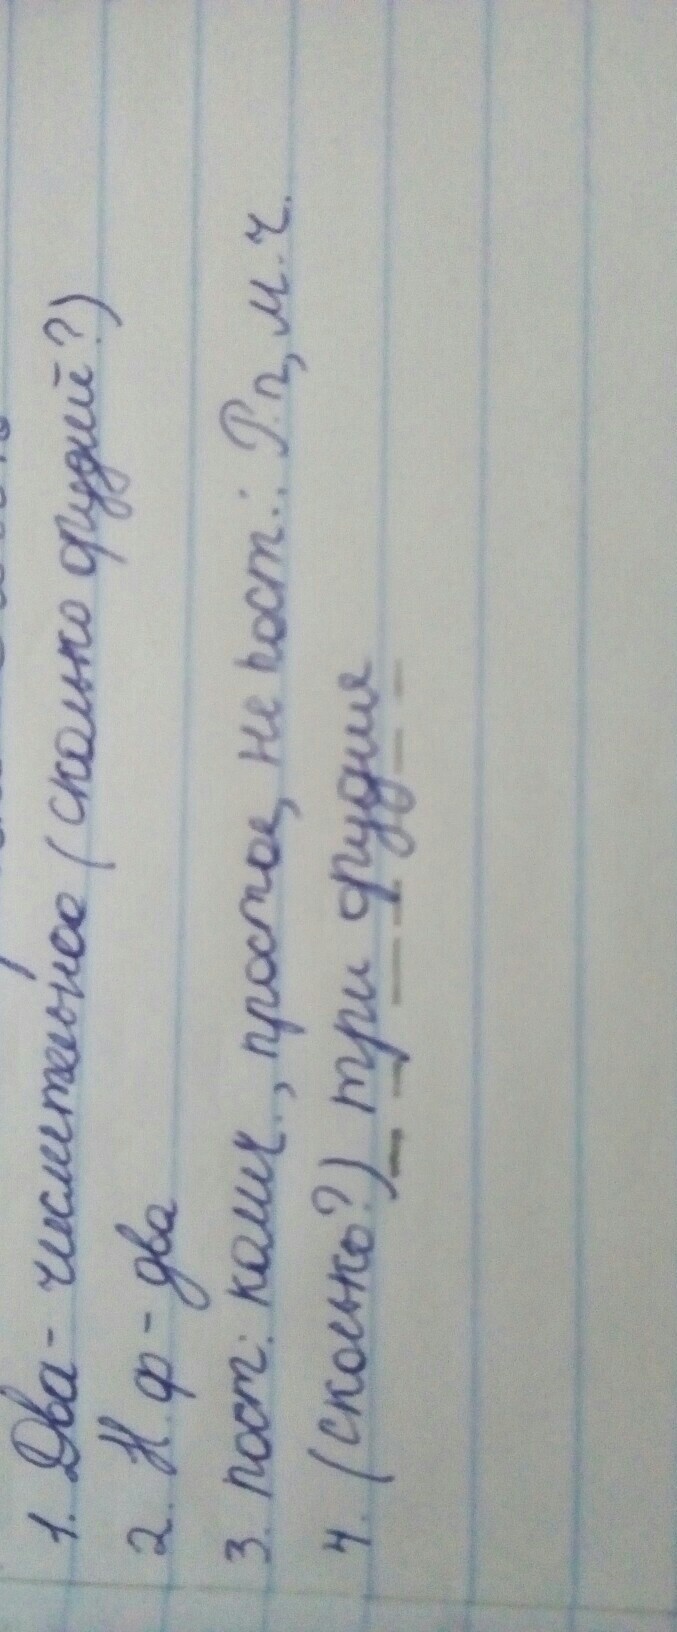 1. Два - числительное (сколько орудий?)
2. Н. ф - два
3. пост: колич., простое, не пост.: Р. п, м. ч.
4. (сколько?) три орудия